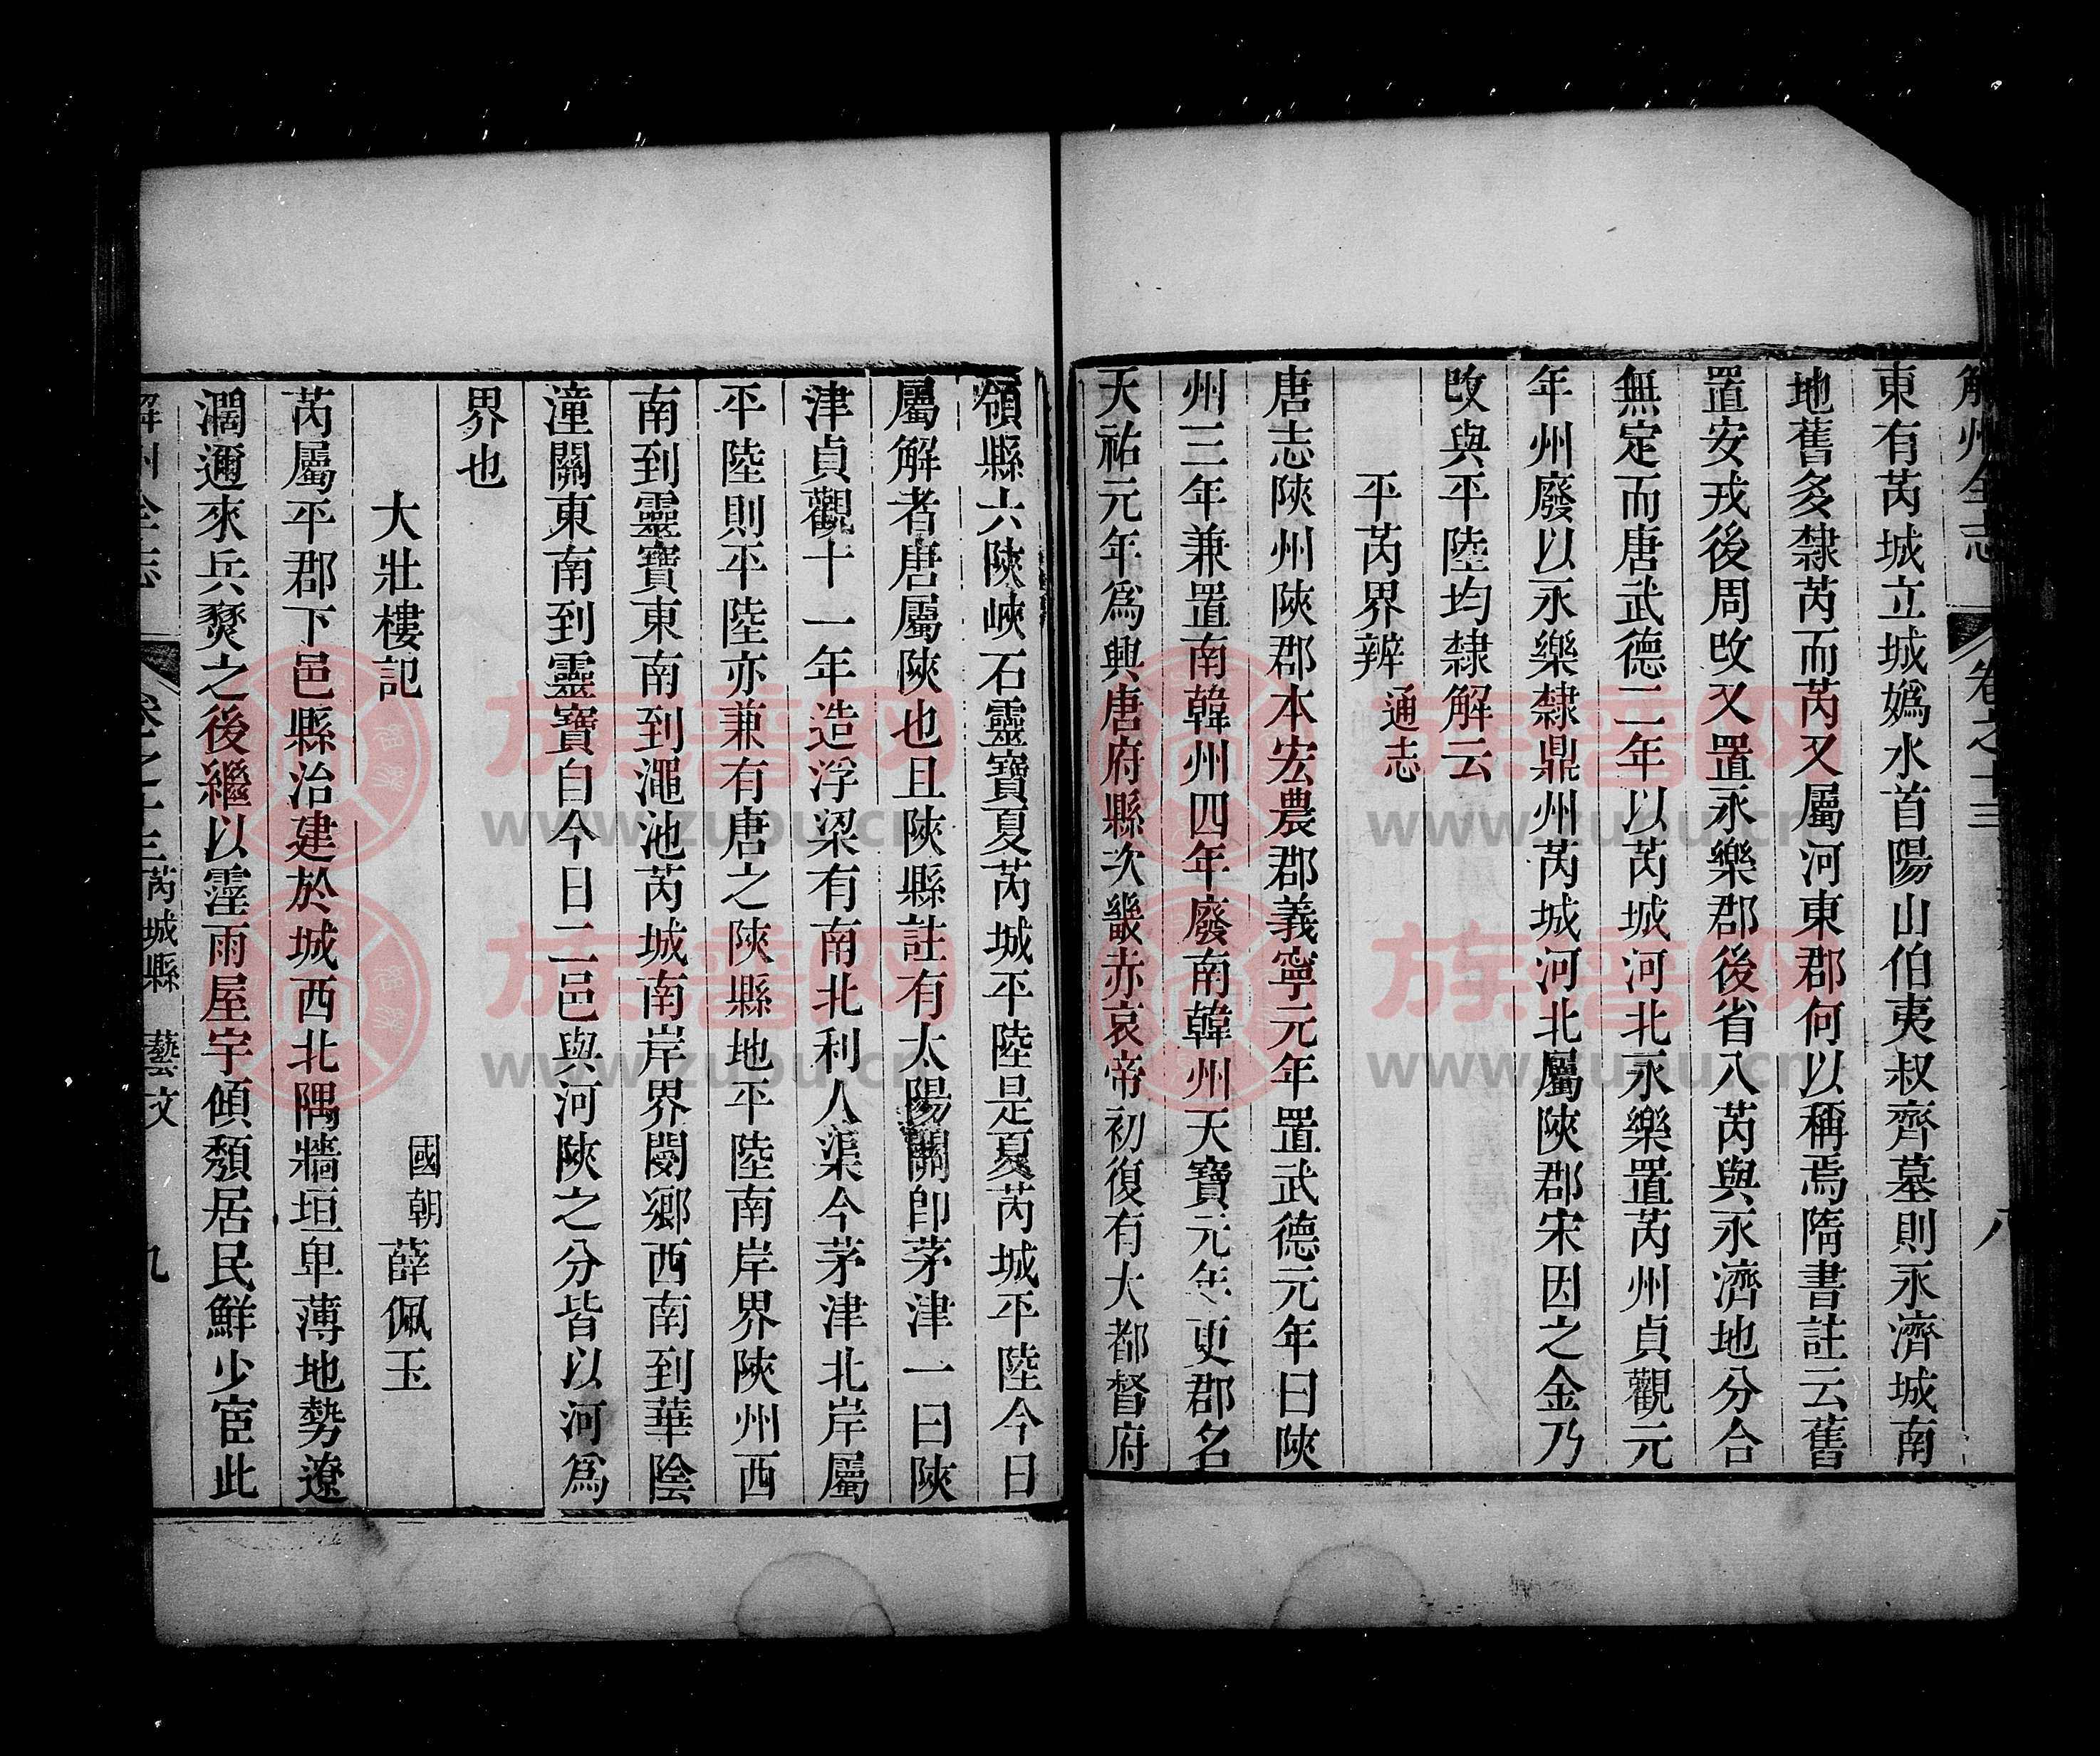 解州全志 卷之十三 八
東有芮城立城媯水首陽山伯夷叔齊墓則永濟城南
地舊多隸芮而芮又屬河東郡何以稱焉隋書註云舊
置安戎後周改又置永樂郡後省入芮與永濟地分合
無定而唐武德二年以芮城河北永樂置芮州貞觀元
年州廢以永樂隸鼎州芮城河北屬陝郡宋因之金乃
改與平陸均隸解云
平芮界辨 通志
唐志陝州陝郡本宏農郡義寧元年置武德元年曰陝
州三年兼置南韓州四年廢南韓州天寶元年更郡名
天祐元年為興唐府縣次畿赤哀帝初復有大都督府
領縣六陝峽石靈寶夏芮城平陸是夏芮城平陸今日
屬解者唐屬陝也且陝縣註有太陽關即茅津一曰陝
津貞觀十一年造浮梁有南北利人渠今茅津北岸屬
平陸則平陸亦兼有唐之陝縣地平陸南岸界陝州西
南到靈寶東南到澠池芮城南岸界閿鄉西南到華陰
潼關東南到靈寶自今日二邑與河陝之分皆以河為
界也
大壯樓記 國朝 薛佩玉
芮屬平郡下邑縣治建於城西北隅牆垣卑薄地勢遼
濶邇來兵燹之後繼以霪雨屋宇傾頹居民鮮少宦此
解州全志 卷之十三 芮城縣 藝文 九
族譜网
www.zupu.cn
族譜网
www.zupu.cn
族譜网
www.zupu.cn
族譜网
www.zupu.cn